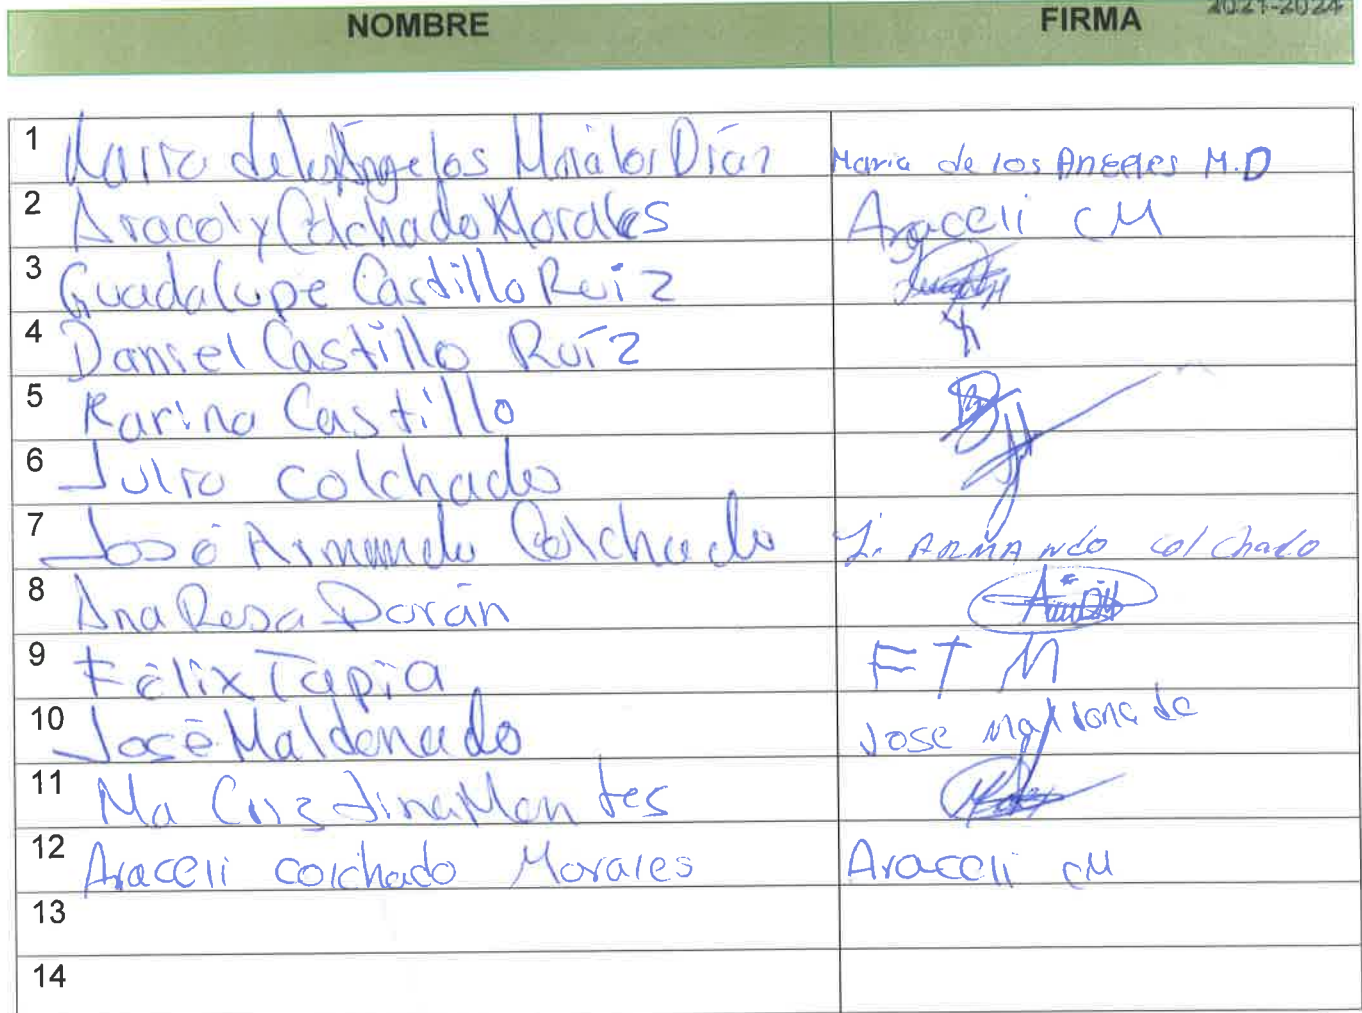 2021-2024
NOMBRE FIRMA
1 Maria de los Angelos Morales Díaz Maria de los Angeles M.D
2 Aracely Colchado Morales Araceli CM
3 Guadalupe Castillo Ruiz
4 Daniel Castillo Ruíz
5 Karina Castillo
6 Julio Colchado
7 José Armando Colchado J. ARMANdo colchado
8 Ana Rosa Durán
9 Félix Tapia FTM
10 José Maldonado Jose maldonado
11 Ma Cristina Montes
12 Araceli colchado Morales Araceli cM
13
14